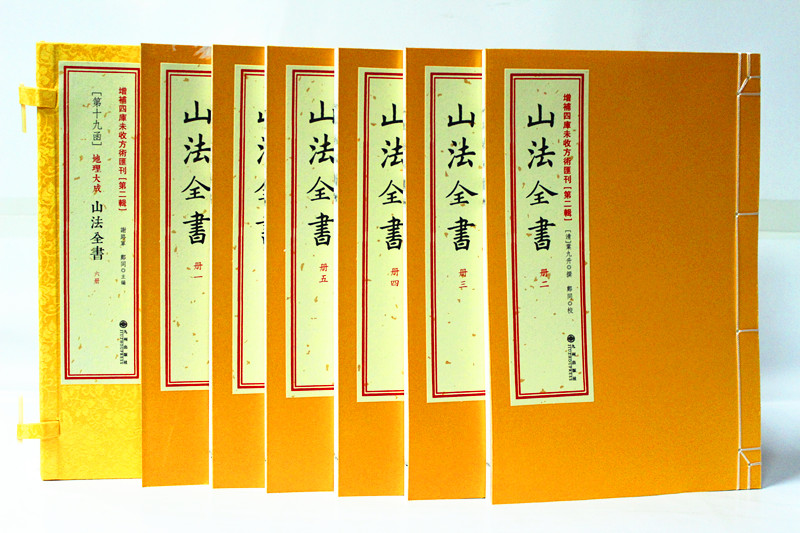 增補四庫未收方術匯刊[第二輯]
謝路軍 鄭同◎主編
[第十九函] 地理大成 山法全書 六册
九州出版社
JIUZHOUPRESS
山法全書 册一
山法全書 册五
山法全書 册四
山法全書 册三
增補四庫未收方術匯刊[第二輯]
[清]葉九升◎撰 鄭同◎校
山法全書 册二
九州出版社
JIUZHOUPRESS